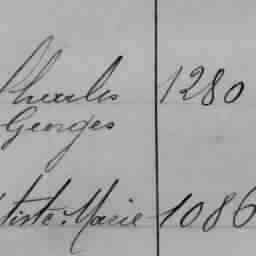 Charles 1280
Georges
tiste Marie 1086